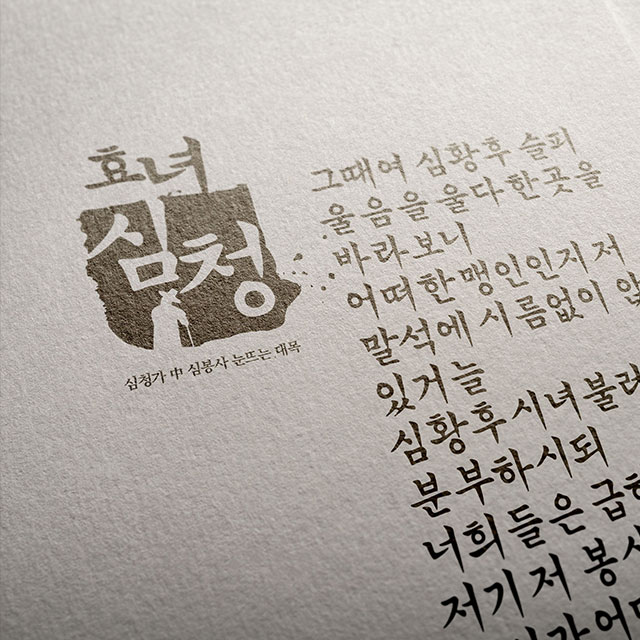 효녀
심청
심청가 中 심봉사 눈뜨는 대목
그때여 심황후 슬피
울음을 울다 한 곳을
바라보니
어떠한 맹인인지 저
말석에 시름없이
있거늘
심황후 시녀
분부하시되
너희들은
저기 저